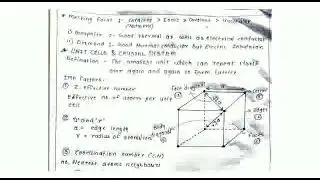 * Melting Point :- Covalent > Ionic > Covalent >
(Network)
i) Graphite :- Good thermal as well as electrical conductor
ii) Diamond :- Good thermal conductor but Electric Insulator
* UNIT CELLS & CRYSTAL SYSTEM
Definition :- The smallest unit which can repeat itself
over again and again to form lattice
Imp Factors:-
① Z. effective number
Effective no. of atoms per unit
cell
Face diagonal
Corner
Edge
Body diagonal
Faces
② 'a' and 'r'
a = edge length
r = radius of
③ Coordination number (CN)
no. Nearest atoms neighbours